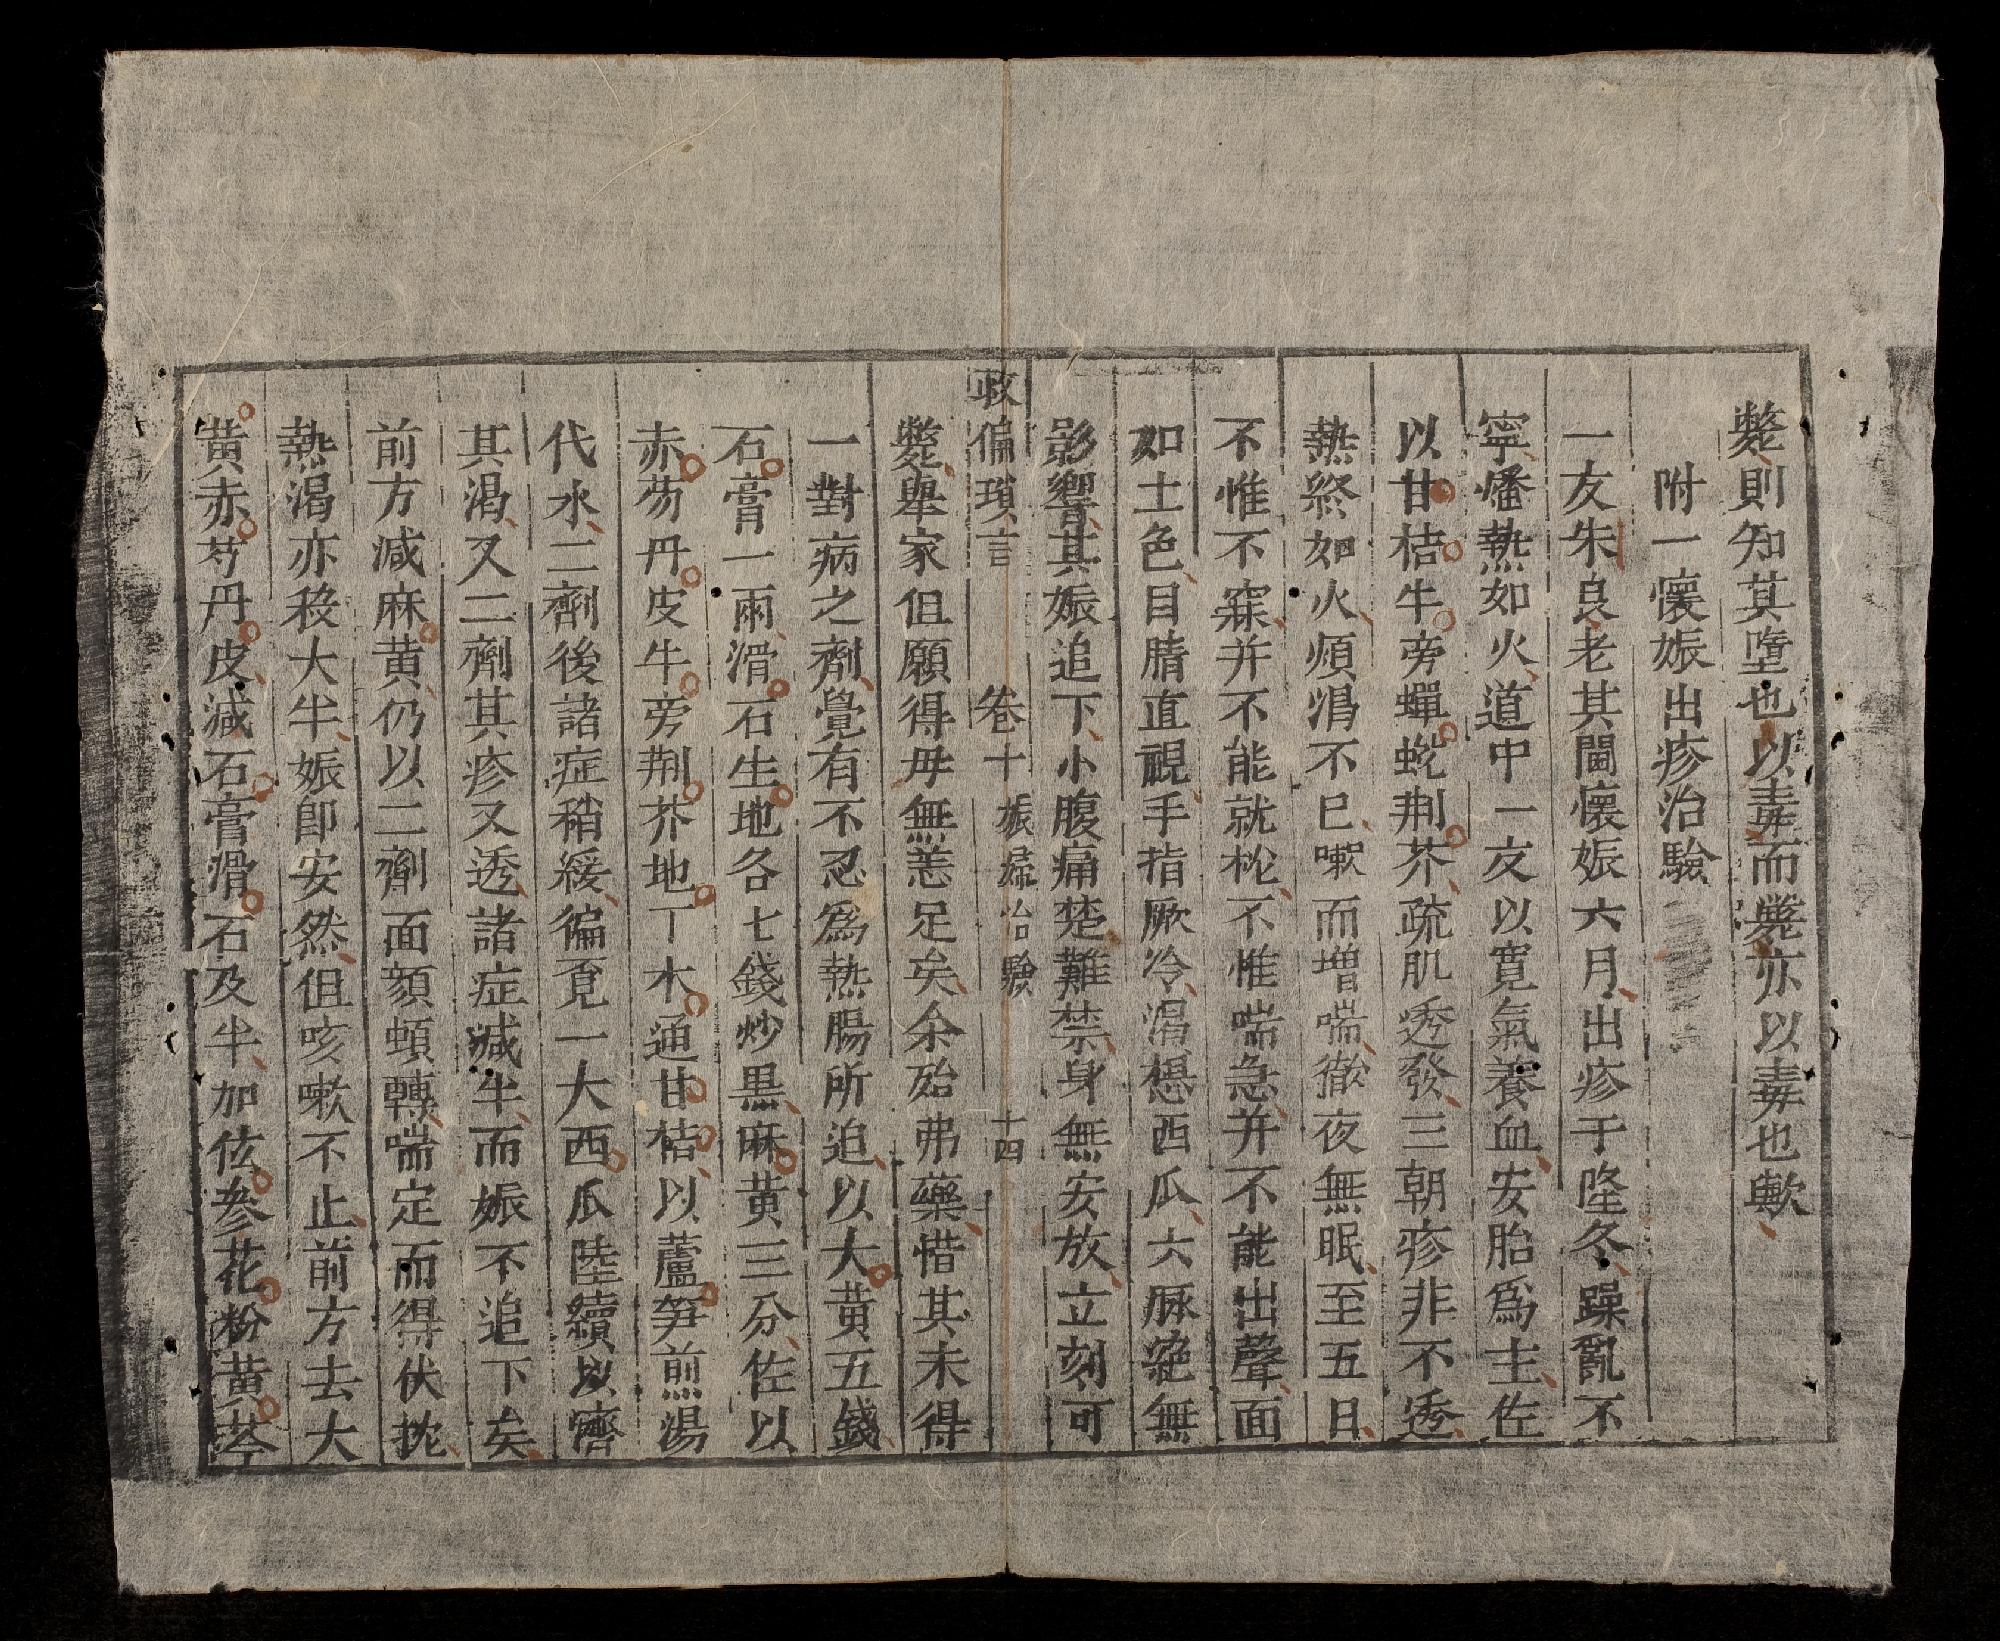 斃則知其墮也以毒而斃亦以毒也歟
附一懷娠出疹治驗
一友朱良老其閫懷娠六月出疹于隆冬躁亂不
寧燔熱如火道中一友以寬氣養血安胎爲主佐
以甘桔牛旁蟬蛻荆芥疏肌透發三朝疹非不透
熱終如火煩渴不已嗽而增喘徹夜無眠至五日
不惟不寐并不能就枕不惟喘急并不能出聲面
如土色目睛直視手指厥冷渴想西瓜六脉絶無
影響其娠追下小腹痛楚難禁身無安放立刻可
救偏瑣言 卷十 娠婦治驗 十四
斃舉家但願得毋無恙足矣余始弗藥惜其未得
一對病之劑覺有不忍爲熱腸所追以大黄五錢
石膏一兩滑石生地各七錢炒黑麻黄三分佐以
赤芍丹皮牛旁荆芥地丁木通甘桔以蘆笋煎湯
代水二劑後諸症稍緩徧覓一大西瓜陸續以濟
其渴又二劑其疹又透諸症減半而娠不追下矣
前方減麻黄仍以二劑面顏頓轉喘定而得伏枕
熱渴亦殺大半娠卽安然但咳嗽不止前方去大
黄赤芍丹皮減石膏滑石及半加伭參花粉黄芩